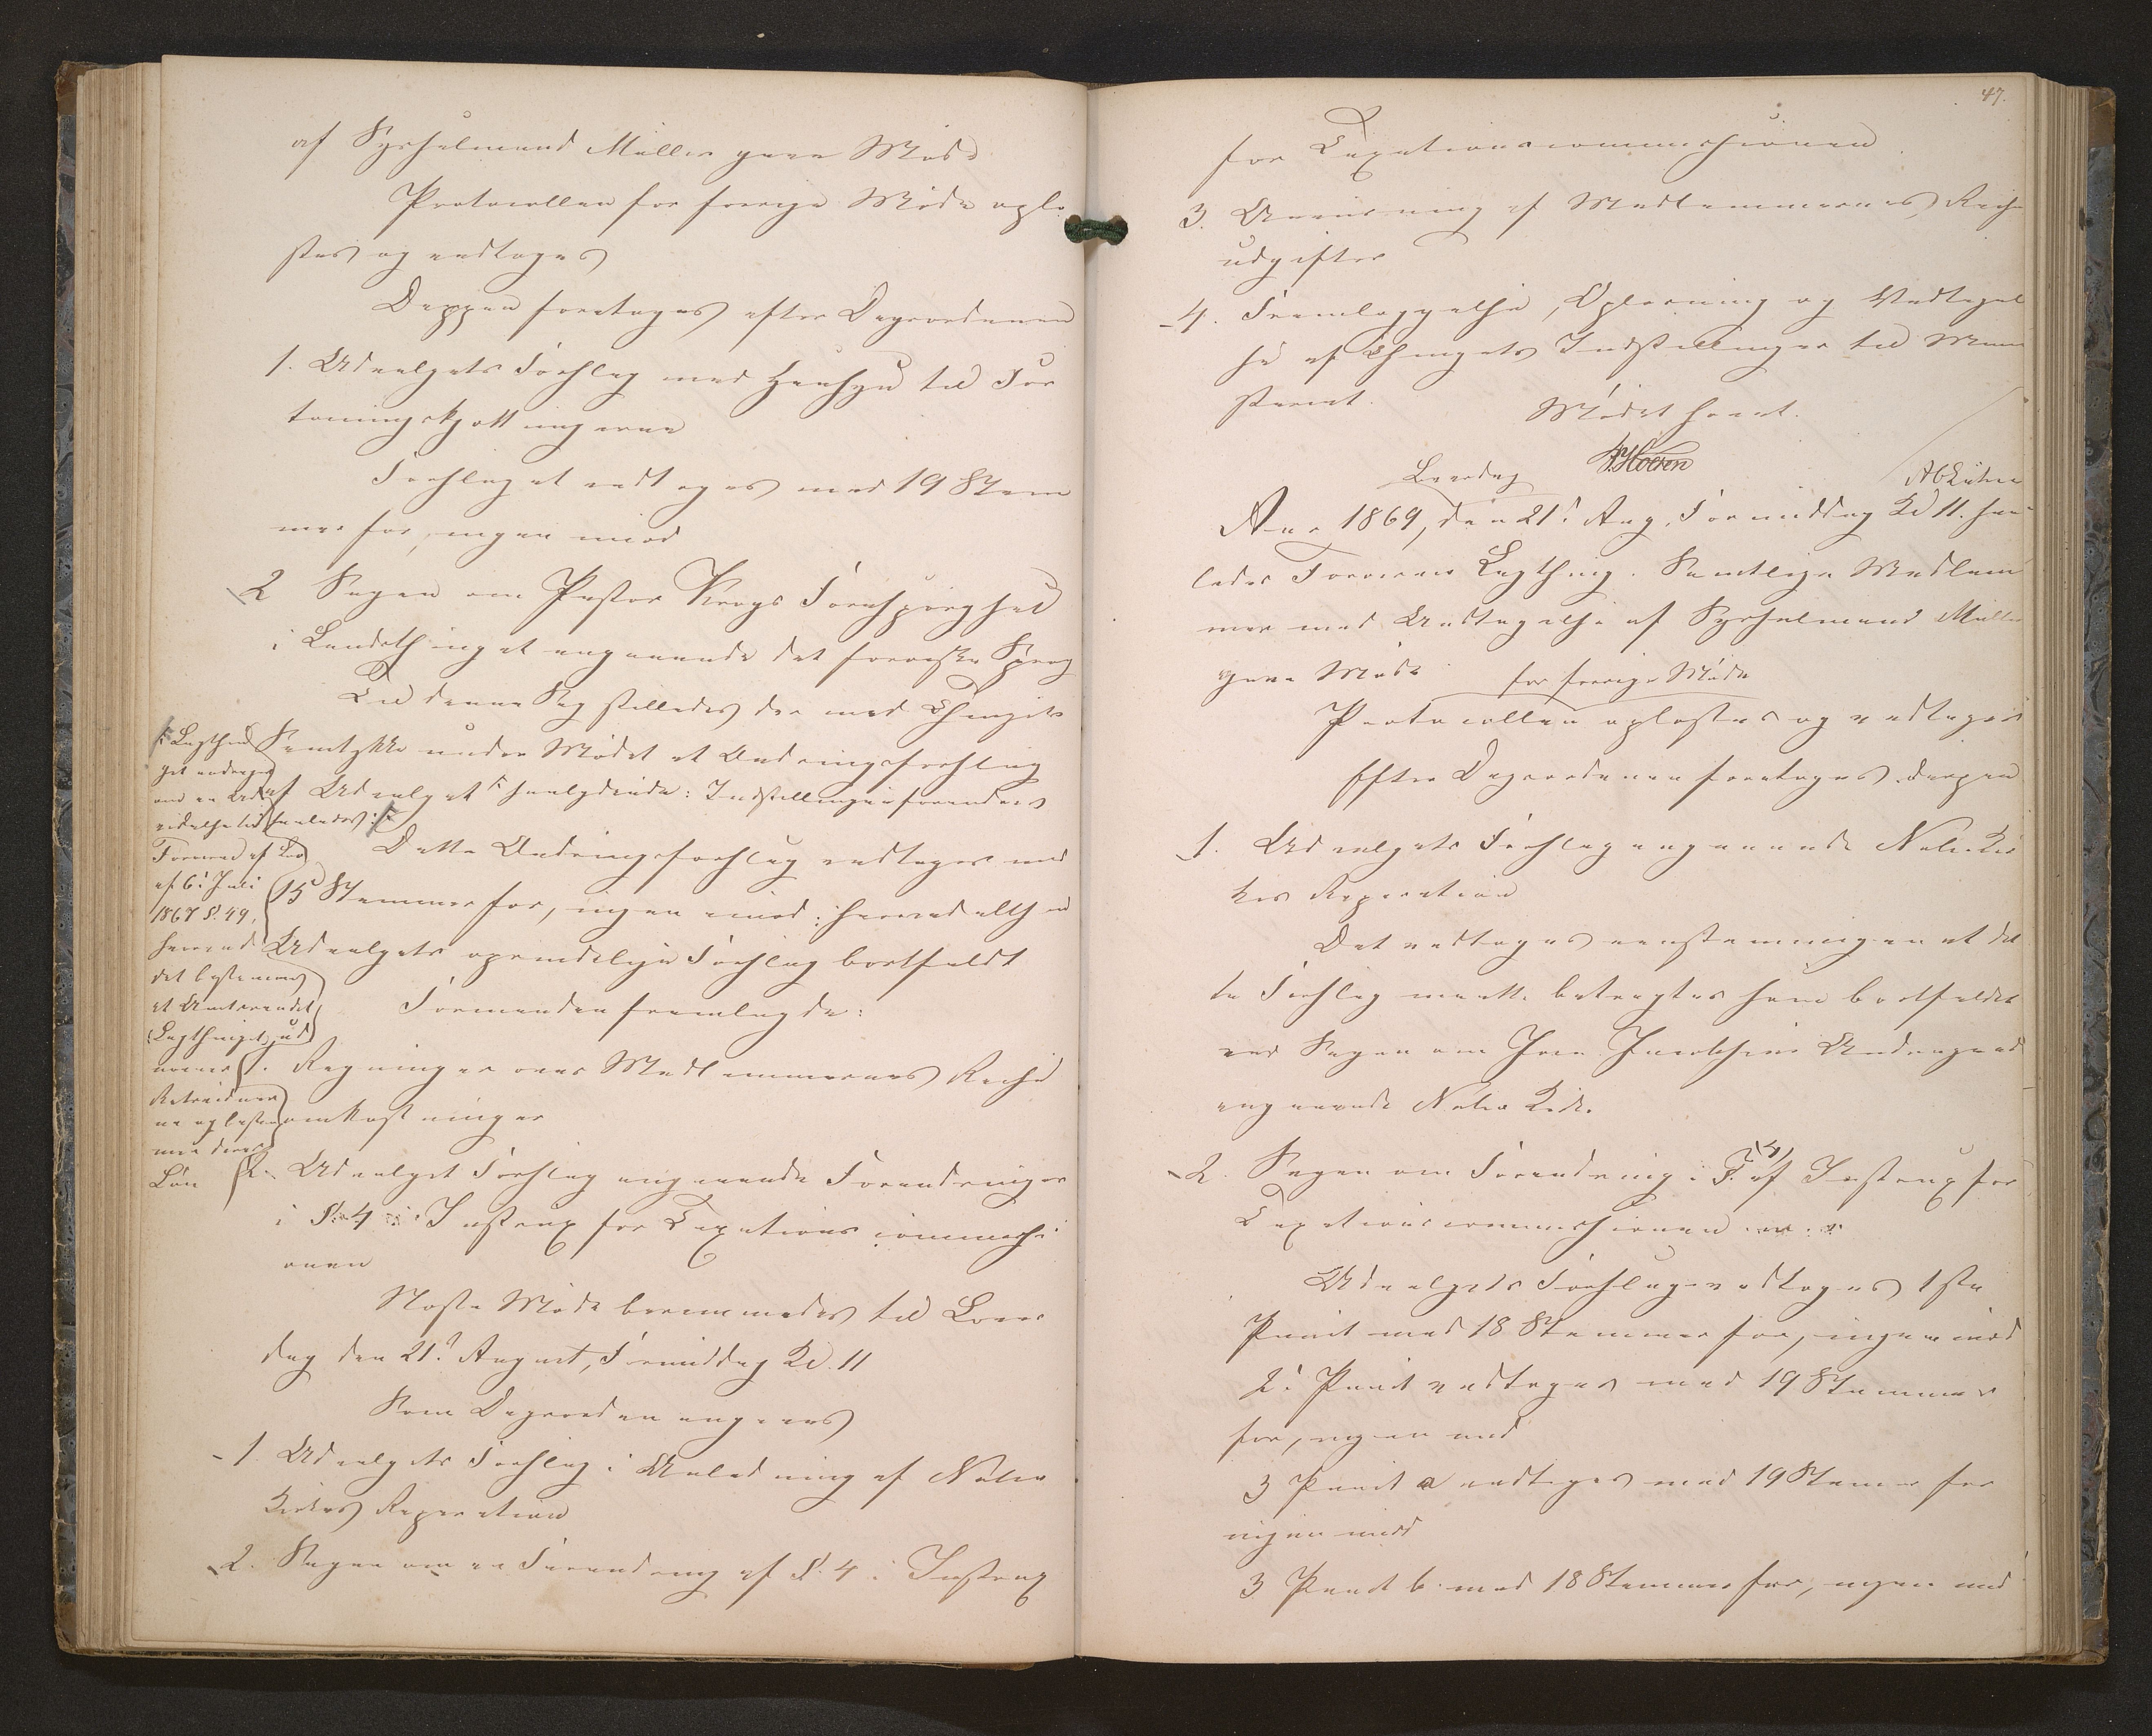 af Sysselmand Müller gave Møde
Protocollen for forrige Møde oplæ-
stes og vedtoges
Derpaa foretoges efter Dagsordenen
1. Udvalgets Forslag med Hensyn til For
toiningskjættingerne
Forslaget vedtoges med 19 Stem
mer for, ingen imod
2 Sagen om Pastor Krogs Forespørgsel
i Landsthinget angaaende det færøiske Sprog
Til denne Sag stilledes der med Thingets
Samtykke under Mødet et Ændringsforslag
af Udvalget saalydende: Indstillingen forandres
Dette Ændringsforslag vedtoges med
15 Stemmer for, ingen imod; hvorved altsaa
Udvalgets oprindelige Forslag bortfaldt
Formanden fremlagde:
1. Regninger over Medlemmernes Reise
omkostninger
2. Udvalget Forslag angaaende Forandringer
i §. 4 i Instrux for Taxationscommissi
onen
Næste Møde berammedes til Løver
dag den 21de August, Formiddag Kl. 11
Som Dagsorden angaves
1. Udvalgets Forslag i Anledning af Nolsø
Kirkes Reparation
2. Sagen om en Forandring af §. 4 i Instrux
i Lagthin
get
Løv
af 6te Juli
1867 §. 49,
hvorved
det bestemmes
at Amtmanden
Lagthinget ud
nævner
Løn
47.
for Taxationscommissionen.
3. Anvisning af Medlemmernes Reise
udgifter
4. Fremlæggelse, Oplæsning og Vedtagel
se af Thingets Indstillinger til Mini
steriet.
Mødet hævet.
HCMüller
Løverdag
Aar 1869, den 21de Aug. Formiddag Kl 11. hol
tedes Færøernes Lagthing. Samtlige Medlem
mer med Undtagelse af Sysselmand Müller
gave Møde
for forrige Møde
Protocollen oplæstes og vedtoges
Efter Dagsordenen foretoges derpaa
1. Udvalgets Forslag angaaende Nolsø Kir
kes Reparation
Det vedtoges eenstemmigen at det
te Forslag maatte betragtes som bortfaldet
ved Sagen om Andragende
angaaende Nolsø Kirke.
2. Sagen om Forandring i §. 4 af Instrux for
Taxationscommissionen
Udvalgets Forslag vedtoges 1ste
Punct med 18 Stemmer for, ingen imod
2de Punct vedtoges med 19 Stemmer
for, ingen imod
3 Punct a vedtoges med 19 Stemmer for
ingen imod
3 Punct b. med 18 Stemmer for, ingen imod